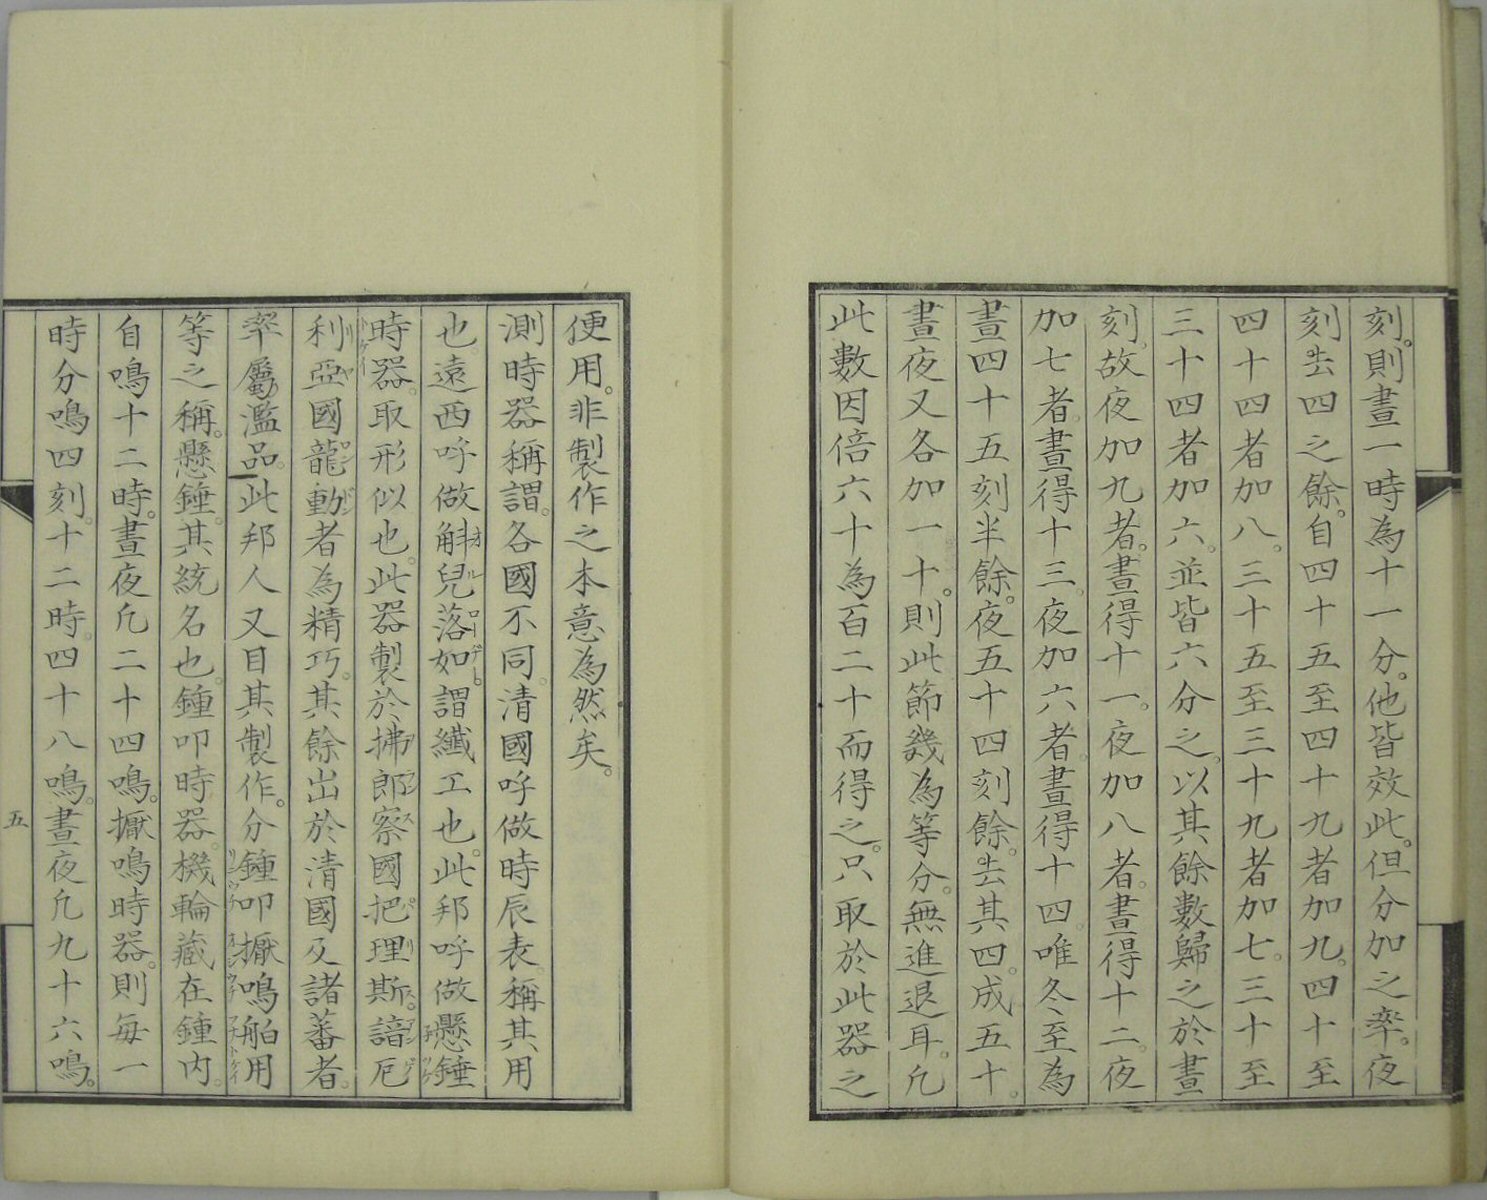 刻。則晝一時為十一分。他皆效此。但分加之率。夜
刻去四之餘。自四十五至四十九者加九。四十至
四十四者加八。三十五至三十九者加七。三十至
三十四者加六。並皆六分之。以其餘數歸之於晝
刻。故夜加九者。晝得十一。夜加八者。晝得十二。夜
加七者。晝得十三。夜加六者。晝得十四。唯冬至為
晝四十五刻半餘。夜五十四刻餘。去其四。成五十。
晝夜又各加一十。則此節幾為等分。無進退耳。凡
此數因倍六十為百二十而得之。只取於此器之
便用。非製作之本意為然矣。
測時器稱謂。各國不同。清國呼做時辰表。稱其用
也遠西呼做斛兒落如。謂纖工也。此邦呼做懸錘
時器。取形似也。此器製於拂郎察國把理斯。諳厄
利亞國龍動者為精巧。其餘出於清國及諸蕃者。
率屬濫品。此邦人又目其製作。分鍾叩擨鳴舶用
等之稱。懸錘。其統名也。鍾叩時器。機輪藏在鍾內。
自鳴十二時。晝夜凡二十四鳴。擨鳴時器。則每一
時分鳴四刻。十二時。四十八鳴。晝夜凡九十六鳴。
五